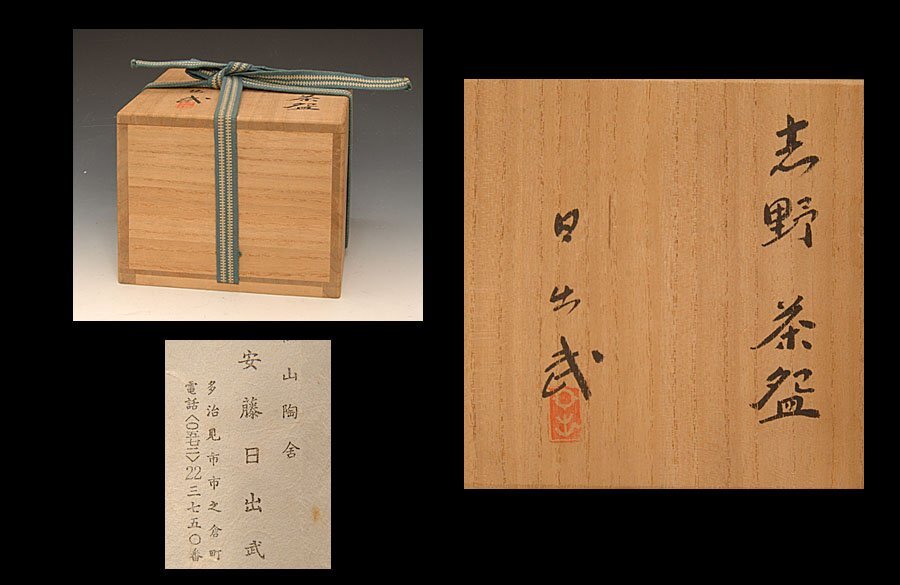 茶盌
武
志野 茶盌
日出武
山陶舎
安藤日出武
多治見市市之倉町
電話〈〇五七二〉22三七五〇番